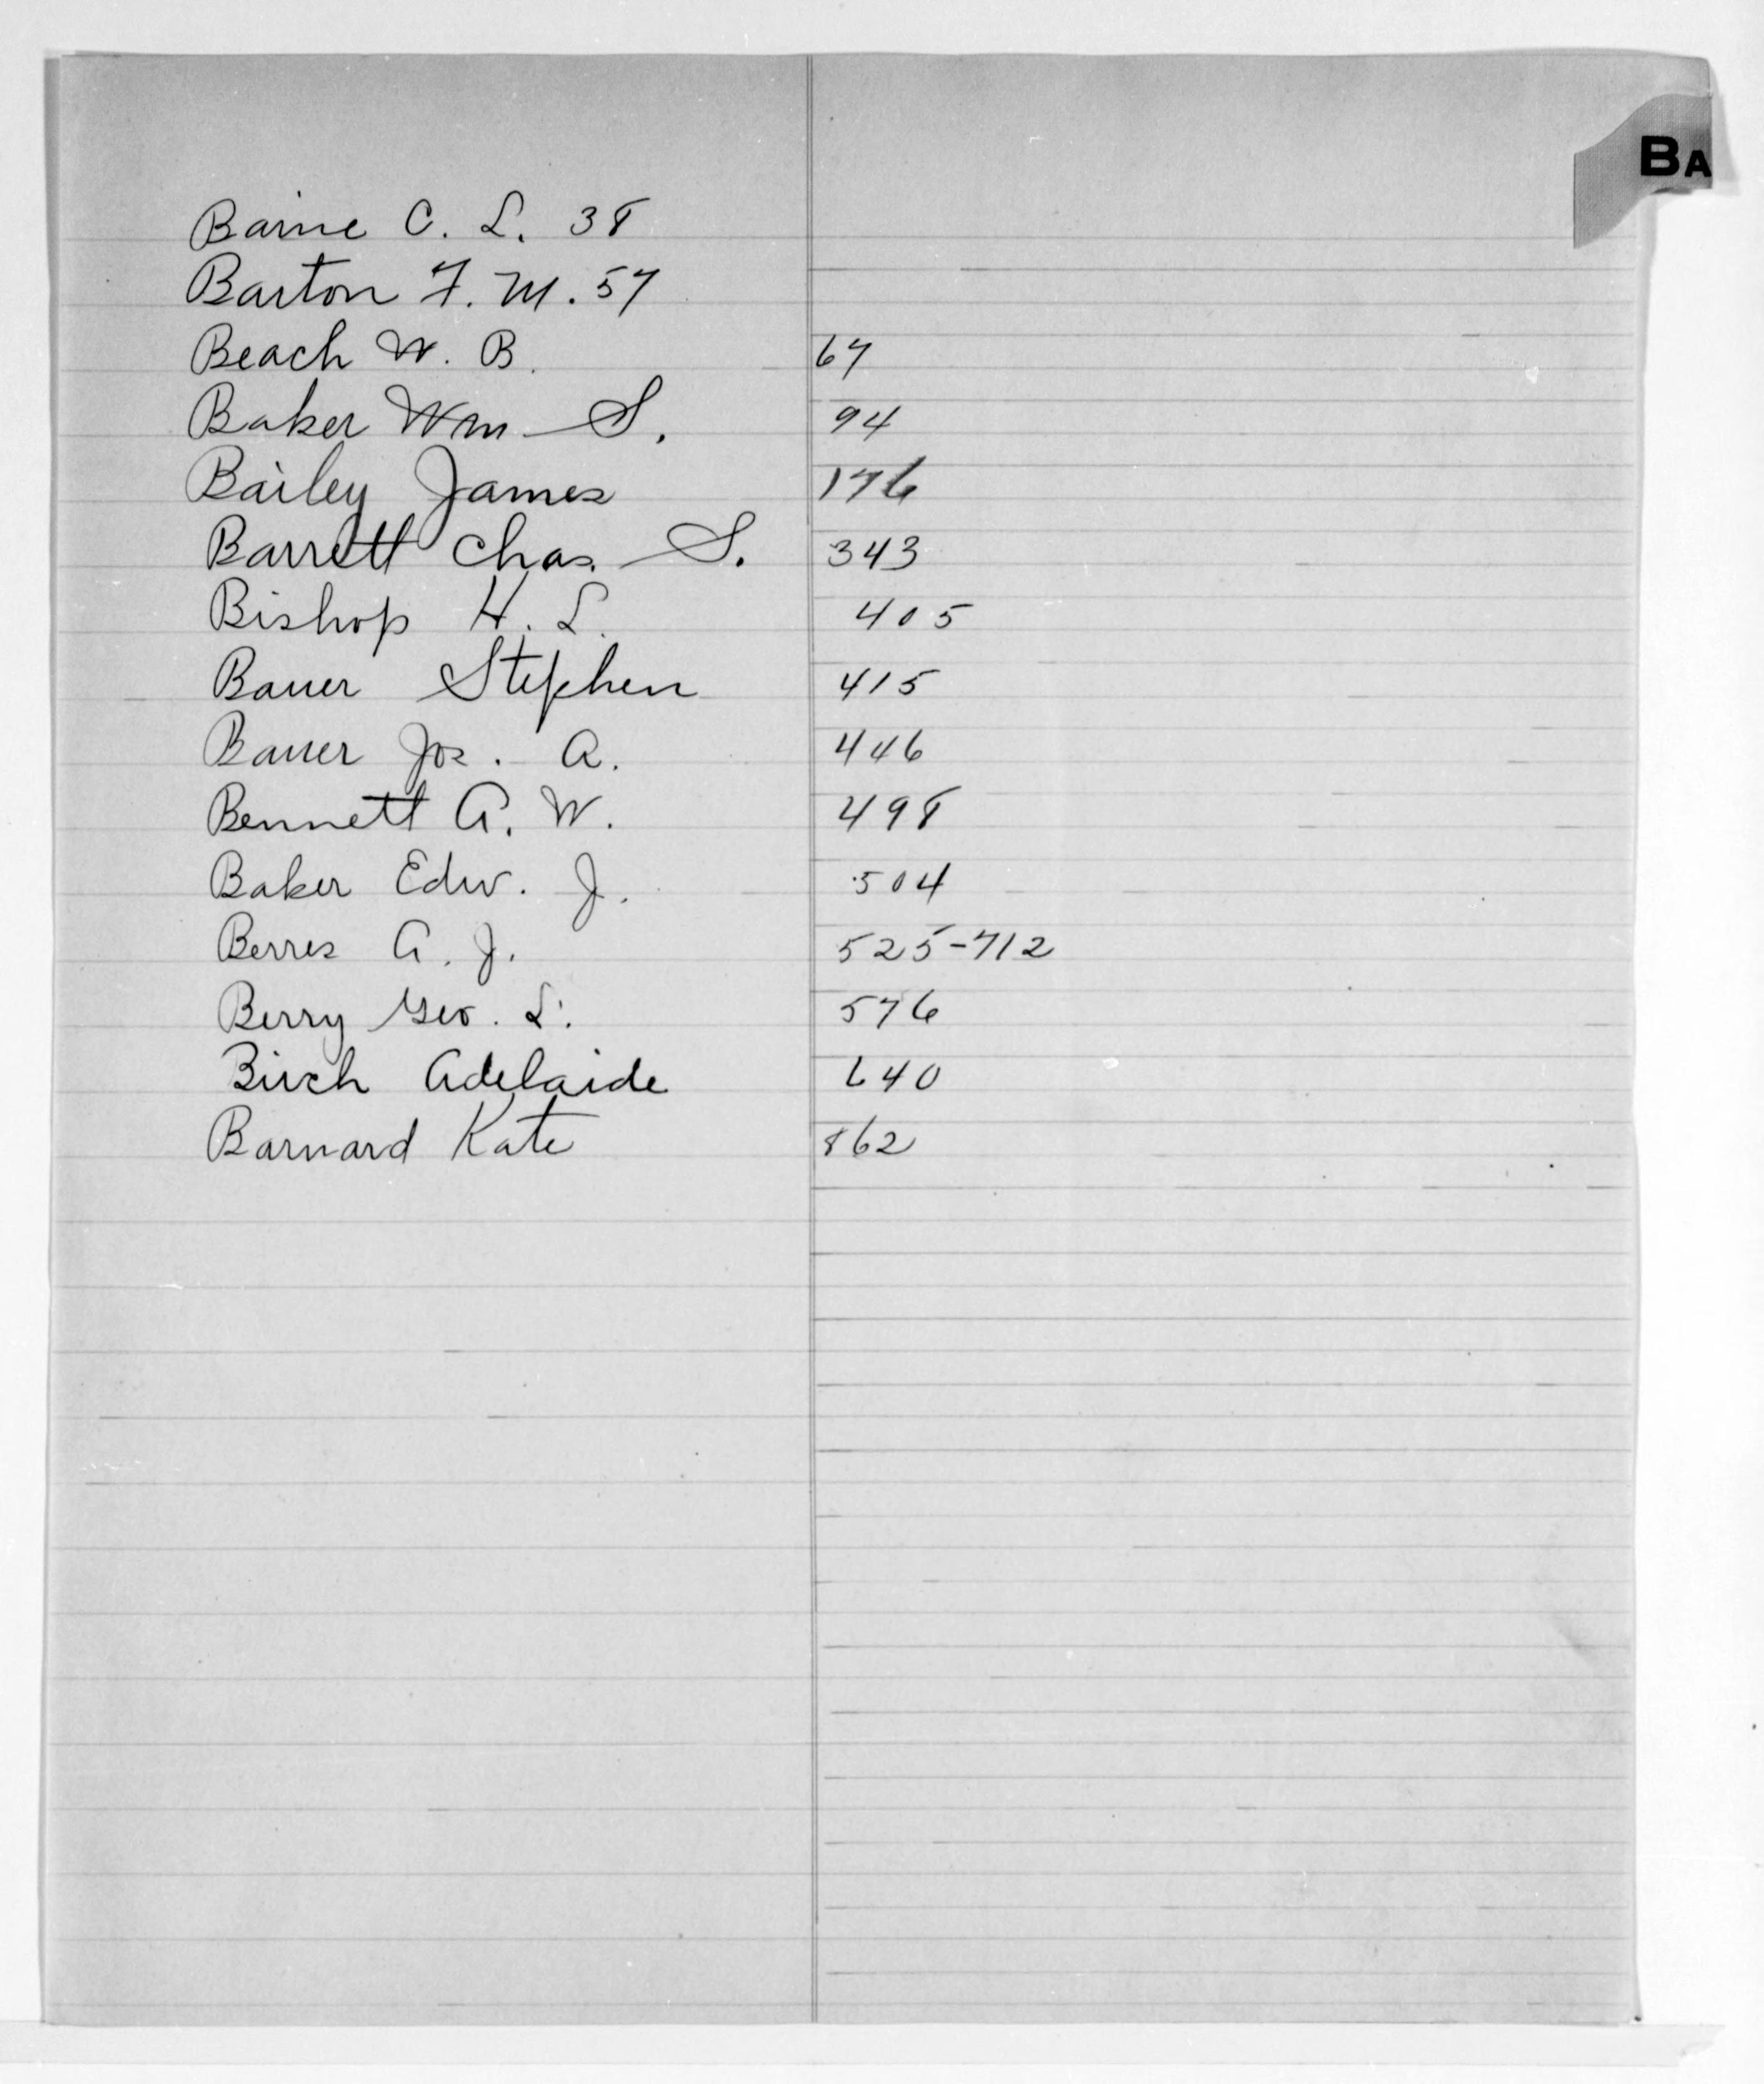 BA
Baine C. L. 38
Barton F. M. 57
Beach W. B. 67
Baker Wm S. 94
Bailey James 176
Barrett Chas. S. 343
Bishop H. L. 405
Bauer Stephen 415
Bauer Jos. A. 446
Bennett A. W. 498
Baker Edw. J. 504
Berres A. J. 525-712
Berry Geo. L. 576
Birch Adelaide 640
Barnard Kate 862